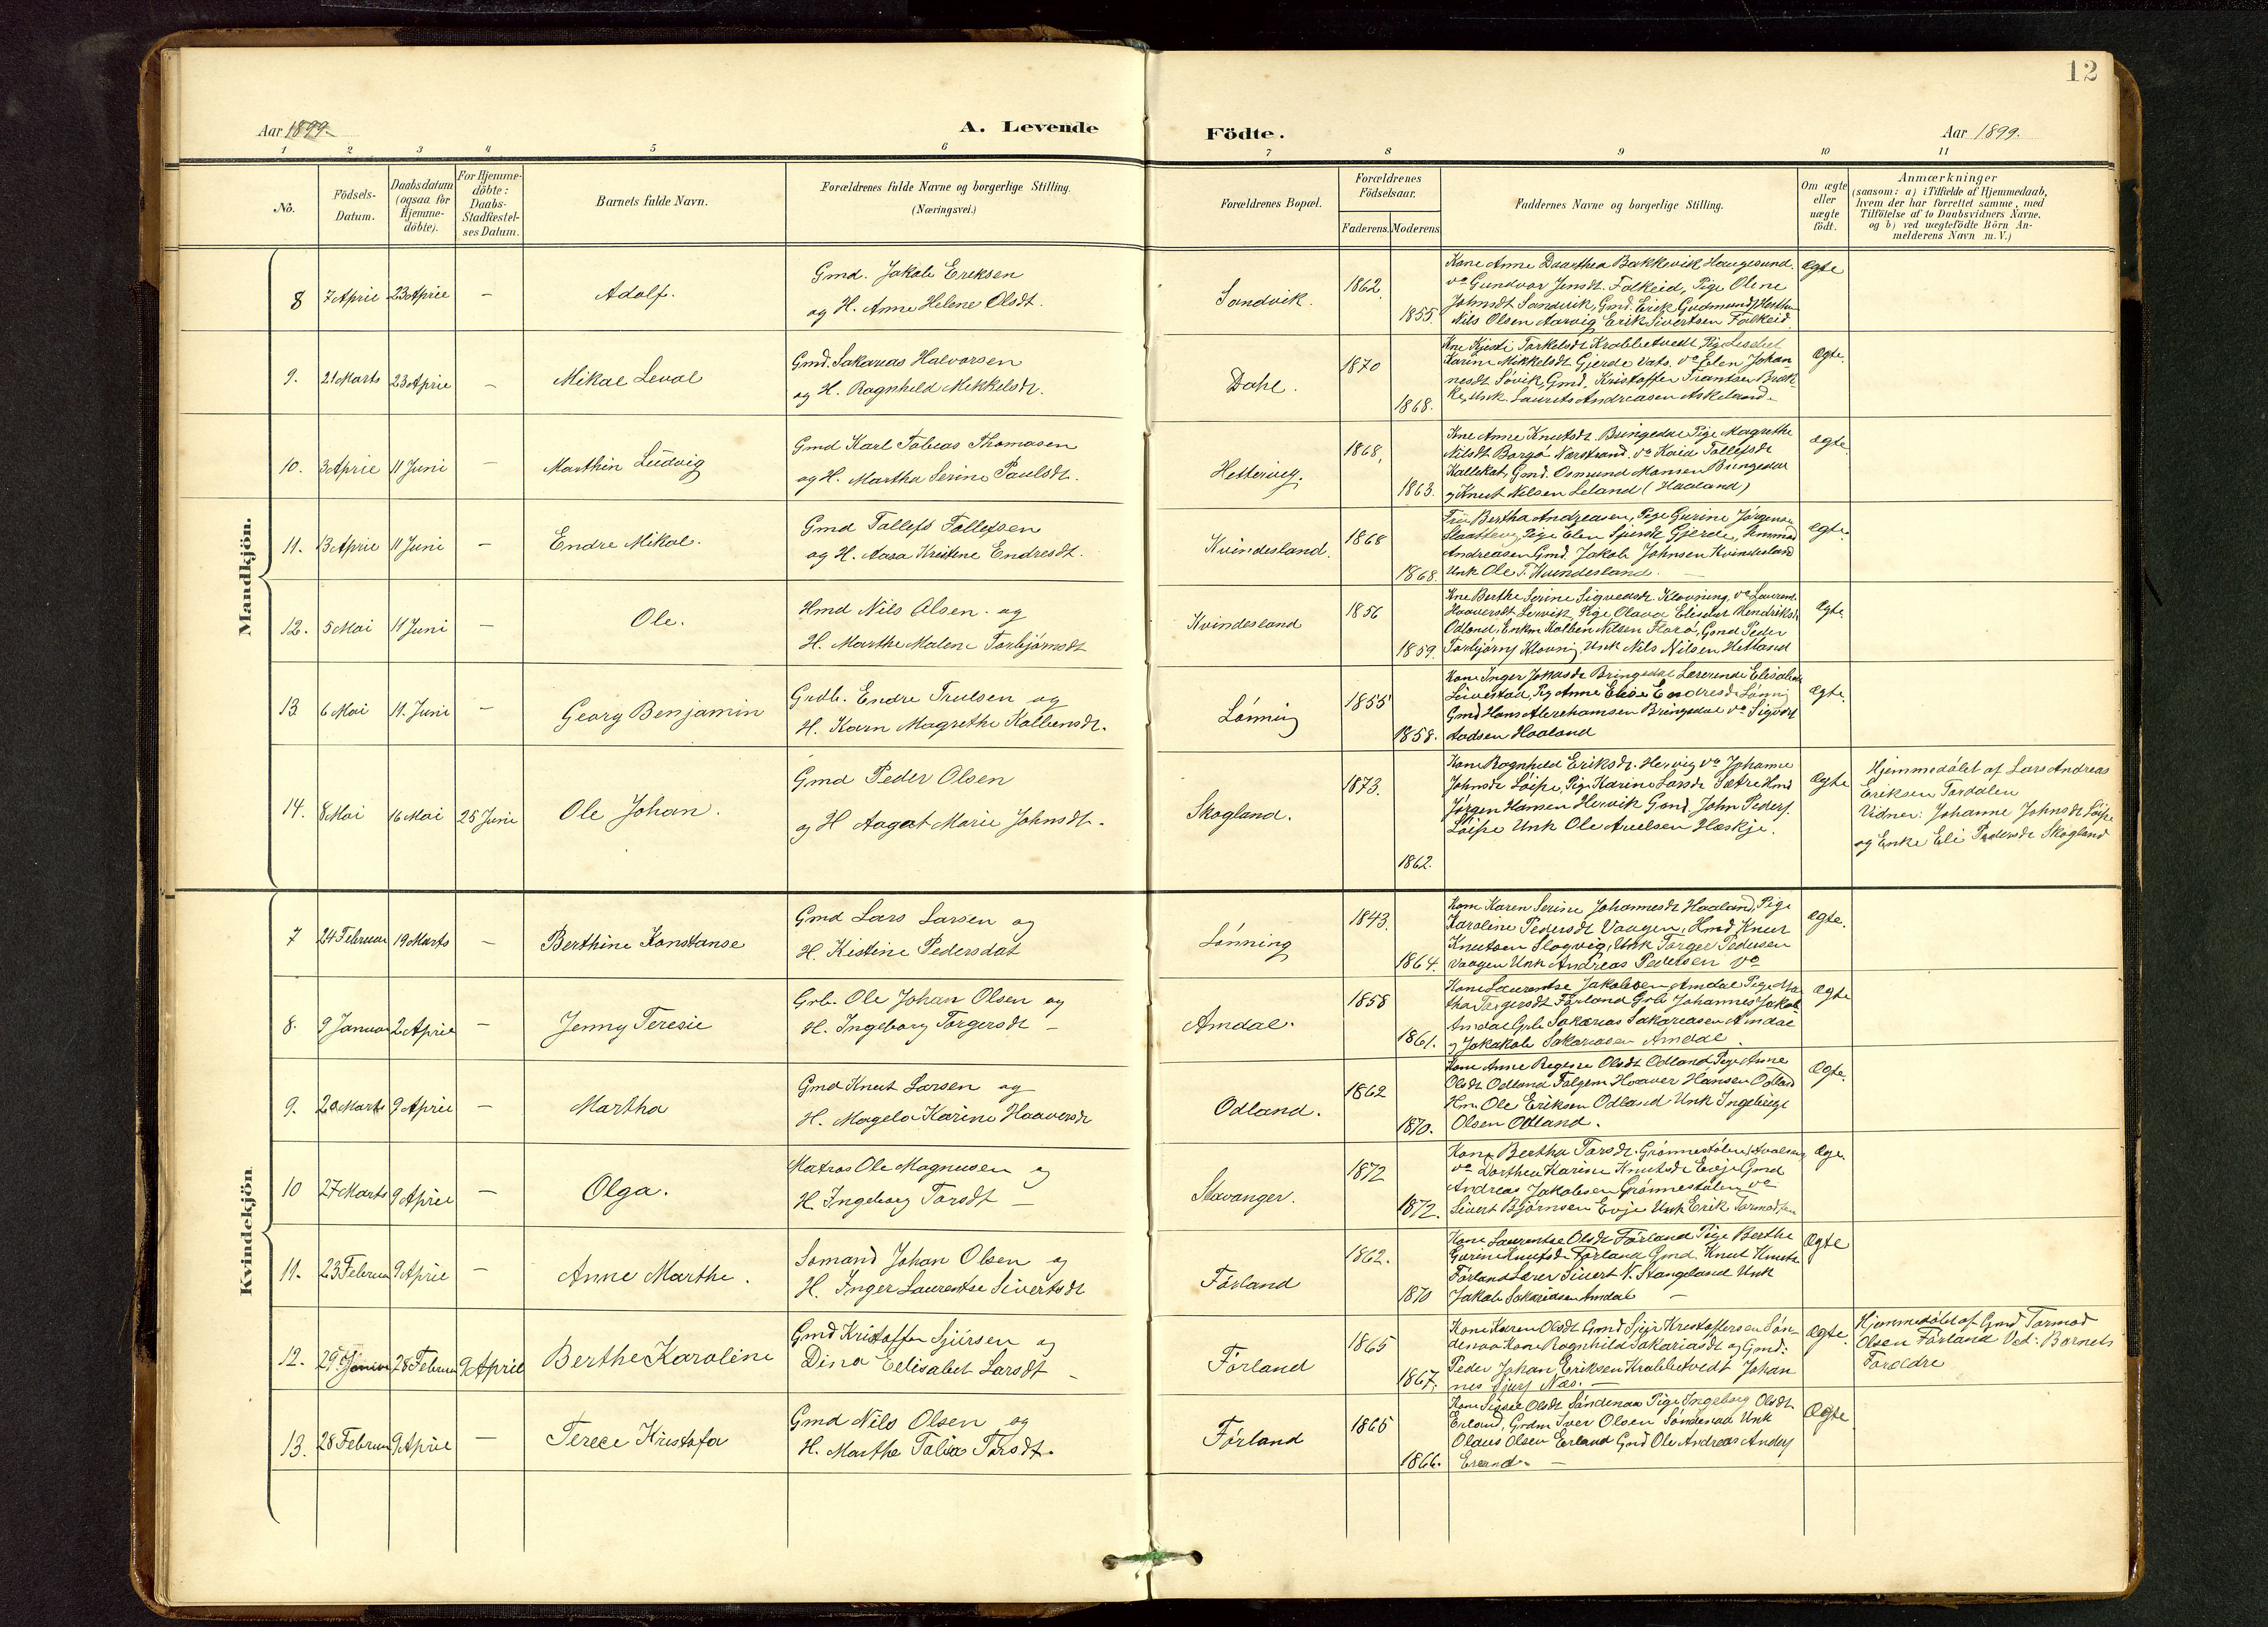 12
Aar 1899.
A. Levende
Födte.
Aar 1899.
1 2 3 4 5 6 7 8 9 10 11
No.
Födsels-
Datum.
Daabsdatum
(ogsaa for
Hjemme-
döbte).
For Hjemme-
döbte:
Daabs-
Stadfæstel-
ses Datum.
Barnets fulde Navn.
Forældrenes fulde Navne og borgerlige Stilling.
(Næringsvei.)
Forældrenes Bopæl.
Forældrenes
Födselsaar.
Faderens. Moderens
Faddernes Navne og borgerlige Stilling.
Om ægte
eller
uægte
födt.
Anmærkninger
(saasom: a) i Tilfælde af Hjemmedaab,
hvem der har forrettet samme, med
Tilföielse af to Daabsvidners Navne,
og b) ved uægtefödte Börn An-
melderens Navn m.V.)
Mandkjön.
8 7 April 23 April – Adolf.
Gmd. Jakob Eriksen
og H. Anne Helene Olsdt.
Sandvik.
1862.
1855.
Kone Anne Daarthea Bakkevik Haugesund.
va Gundvor Jensdt. Falkeid, Pige Olene
Johnsdt Sandvik, Gmd. Erik Gudmunds
Nils Olsen Aarvig Erik Sivertsen Falkeid
Ægte
9. 21 Marts 23 April – Mikal Leval
Gmd. Sakarias Halvorsen
og H. Ragnhild Mikkelsdt.
Dahl.
1870
1868.
Kne Kjesti Torkelsdt Krabbetveit Pig Lisebet
Karine Mikkelsdt Gjerde Vats. va Elen Johan-
nesdt Søvik, Gmd. Kristoffer Trantsen Bræk-
ke, Unk. Laurits Andreasen Askeland.
Ægte.
10. 3 April 11 Juni – Marthin Ludvig
Gmd Karl Tobias Thomasen
og H. Martha Serine Paulsdt.
1868,
1863.
Kne Anne Knutsdt. Bringedal Pige Magrethe
Nilsdt Borgø Nærstrand. va Kaia Tollefsdt
Kallekot, Gmd. Osmund Monsen Bringedal
og Knut Nilsen Leland (Haaland)
Ægte
11. 13 April 11 Juni – Endre Mikal.
Gmd Tallefs Tollefsen
og H. Aasa Kristine Endresdt.
Kvindesland.
1868
1868.
Bertha Andreasen, Pige Gurine Jørgensen
Pige Elen Gjerde,
Andreasen Gmd. Jakob Johnsen Kvindesland
Unk Ole T. Kvindesland.
Ægte.
12. 5 Mai 11 Juni – Ole.
Hmd Nils Olsen. og
H. Marthe Malene Torbjörnsdt
Kvindesland
1856
1859.
Kne Berthe Serine Sigveasdt. Klovning, va Laurense
Haaversdt Lervik, Pige Olava Elisebet Hendriksdt
Odland, Enkm Kolben Nilsen Florö, Gmd Peder
Torbjörns Klovnig Unk Nils Nilsen Hetland
Ægte.
13. 6 Mai 11. Juni – Georg Benjamin
Grdb. Endre Trulsen og
H. Karn Magrethe Kolbensdt.
Lönning
1855
1858.
Kone Inger Jonasdt Bringedal Lærerinde Elisabeth
Leivestad, Pig Anne Elise Endresdt Lönnig
Gmd Hans Abrehamsen Bringedal va Sigvart
Aadsen Haaland
Ægte.
14. 8 Mai 16 Mai 25 Juni Ole Johan.
Gmd Peder Olsen
og H Aagot Marie Johnsdt.
Skogland.
1873.
1862.
Kone Ragnhild Eriksdt. Hervig va Johanne
Johnsdt Löipe, Pige Karine Larsdt Sætre Hmd
Jörgen Hansen Hervik Gmd. John Peders.
Löipe Unk Ole Hæskje.
Ægte
Hjemmedöbt af Lars Andreas
Eriksen Tordalen
Vidner: Johanne Johnsdt Löipe
og Enke Eli Pedersdt Skogland
Kvindekjön
7 24 Februar 19 Marts – Berthine Konstanse
Gmd Lars Larsen og
H. Kistine Pedersdat
Lönning
1843.
1864.
Kone Karen Serine Johannesdt Haaland, Pige
Karoline Pedersdt Vaagen, Hmd Knut
Knutsen Slogvig, Unk Torger Pedersen
Vaagen Unk Andreas Pedersen va
Ægte.
8. 9 Januar 2 April – Jenny Teresie
Grb. Ole Johan Olsen og
H. Ingeborg Torgersdt –
Amdal.
1858
1861.
Kone Laurentse Jakobsen Amdal Pige Mar-
tha Torgersdt Förland Grb Johannes Jakob
Amdal Grb Sakarias Sakariasen Amdal
og Jakakob Sakariasen Amdal
Ægte
9. 20 Marts 9 April – Martha
Gmd Knut Larsen og
H. Magela Karine Haaversdt
Odland.
1862
1870.
Kone Anne Regine Olsdt Odland Pige Anne
Olsdt Odland Haaver Hansen Odland
Hm. Ole Eriksen Odland Unk Ingebrigt
Olsen Odland.
Ægte.
10 27 Marts 9 April – Olga.
Matros Ole Magnusen og
H. Ingeborg Torsdt –
Stavanger.
1872
1872.
Kone Bertha Torsdt. Grönnestölen,
va Dorthea Karine Knutsdt Evje Gmd
Andreas Jakobsen Grönnestölen va
Sivert Björnsen Evje Unk Erik Tormodsen
Ægte.
11. 23 Februar 9 April – Anne Marthe.
Somand Johan Olsen og
H. Inger Laurentse Sivertsdt
Förland
1862.
1870
Kone Laurentse Olsdt Förland Pige Berthe
Gurine Knutsdt Förland Gmd. Knut Knuts
Förland Lærer Sivert N. Stangeland Unk
Jakob Sakariasen Amdal –
Ægte
12. 29 Januar 28 Februar 9 April Berthe Karoline
Gmd Kristoffer Sjursen og
Dina Eelisabet Larsdt –
Förland
1865
1867.
Kone Karen Olsdt Gmd Sjur Krestoffersen Sön-
denaa Kone Ragnhild Sakariasdt og Gmd.
Peder Johan Eriksen Krabbetvedt Johan
nes Sjurs Næs. –
Ægte.
Hjemmedöbt af Gmd Tormod
Olsen Förland Ved: Barnets
Forældre
13. 28 Februar 9 April – Terece Kristofa
Gmd Nils Olsen og
H. Marthe Tobia Torsdt.
Förland
1865
1866.
Kone Sissel Olsdt Söndenaa Pige Ingeborg Olsdt
Erland, Grdm Iver Olsen Söndenaa Unk
Olaus Olsen Erland Gmd Ole Andreas Anders
Erland. –
Ægte